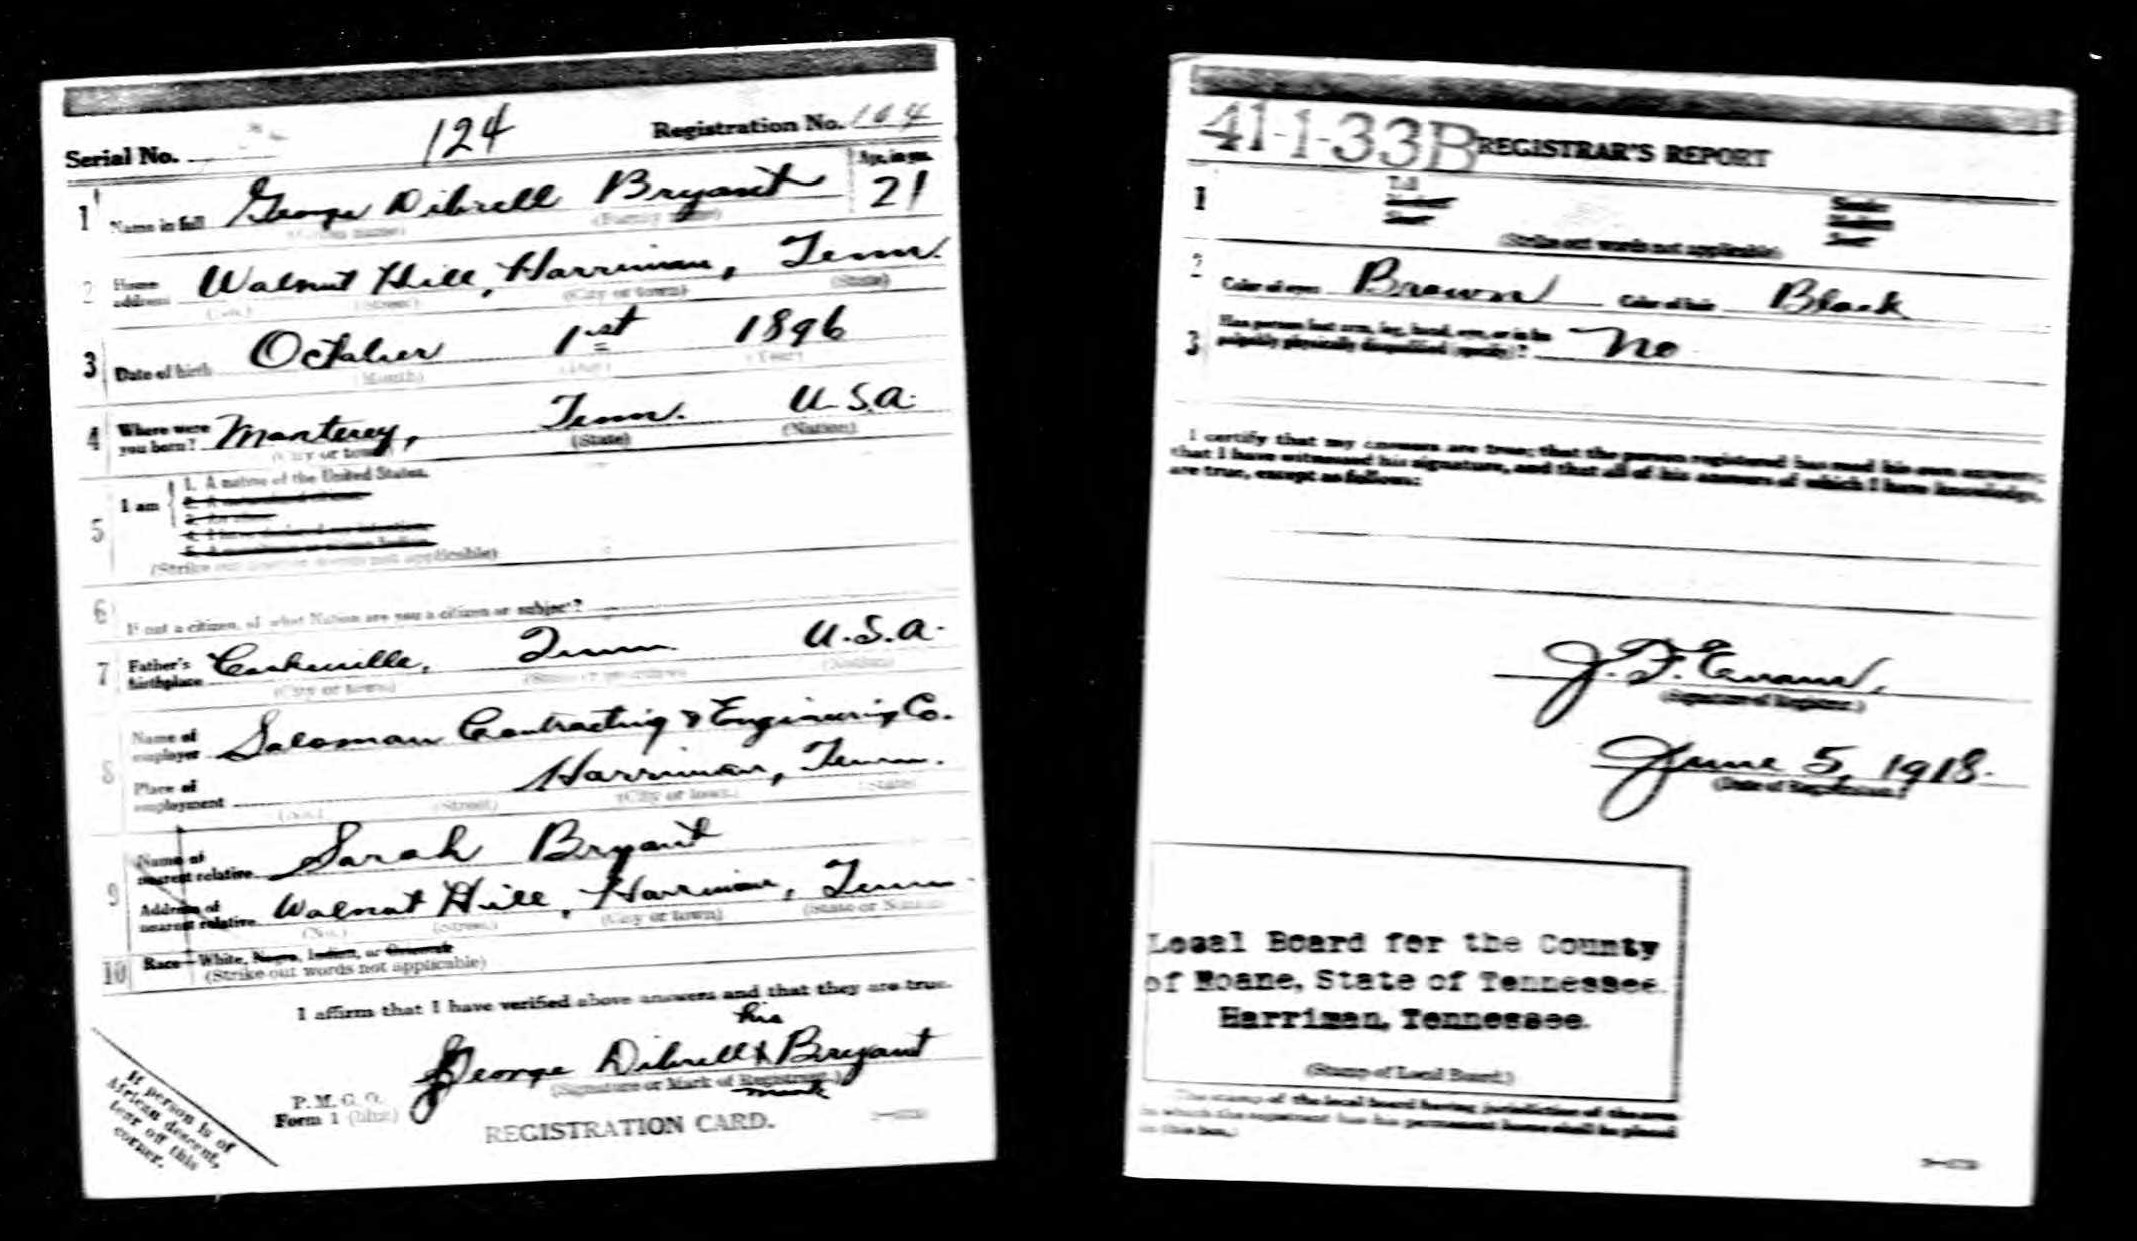 Serial No. 124 Registration No. 124
1 Name in full George Dibrell Bryant Age, in yrs. 21
(Family name)
2 Home address Walnut Hill, Harriman, Tenn.
(No.) (Street) (City or town) (State)
3 Date of birth October 1st 1896
(Month) (Day) (Year)
4 Where were you born? Monterey, Tenn. U.S.A.
(City or town) (State) (Nation)
5 I am
1. A native of the United States.
2. A naturalized citizen.
3. An alien.
4. I have declared my intention.
5. A noncitizen or citizen Indian.
(Strike out items or words not applicable)
6 If not a citizen, of what Nation are you a citizen or subject?
7 Father's birthplace Cookeville, Tenn. U.S.A.
(City or town) (Nation)
8 Name of employer Saloman Contracting & Engineering Co.
Place of employment Harriman, Tenn.
(No.) (Street) (City or town) (State)
9 Name of nearest relative Sarah Bryant
Address of nearest relative Walnut Hill, Harriman, Tenn.
(No.) (Street) (City or town) (State or Nation)
10 Race—White, Negro, Indian, or Oriental
(Strike out words not applicable)
I affirm that I have verified above answers and that they are true.
his
George Dibrell x Bryant
(Signature or Mark of Registrant.)
mark
P. M. G. O.
Form 1 (blue)
REGISTRATION CARD.
If person is of
African descent,
tear off this
corner.
41-1-33B REGISTRAR'S REPORT
1 Tall Slender
Medium Medium
Short Stout
(Strike out words not applicable)
2 Color of eyes Brown Color of hair Black
3 Has person lost arm, leg, hand, eye, or is he
palpably physically disqualified (specify)? No
I certify that my answers are true; that the person registered has read his own answers;
that I have witnessed his signature, and that all of his answers of which I have knowledge,
are true, except as follows:
J. F. Evans.
(Signature of Registrar.)
June 5, 1918.
(Date of Registration.)
Local Board for the County
of Roane, State of Tennessee.
Harriman, Tennessee.
(Stamp of Local Board.)
The stamp of the local board having jurisdiction of the area
in which the registrant has his permanent home shall be placed
in this box.)